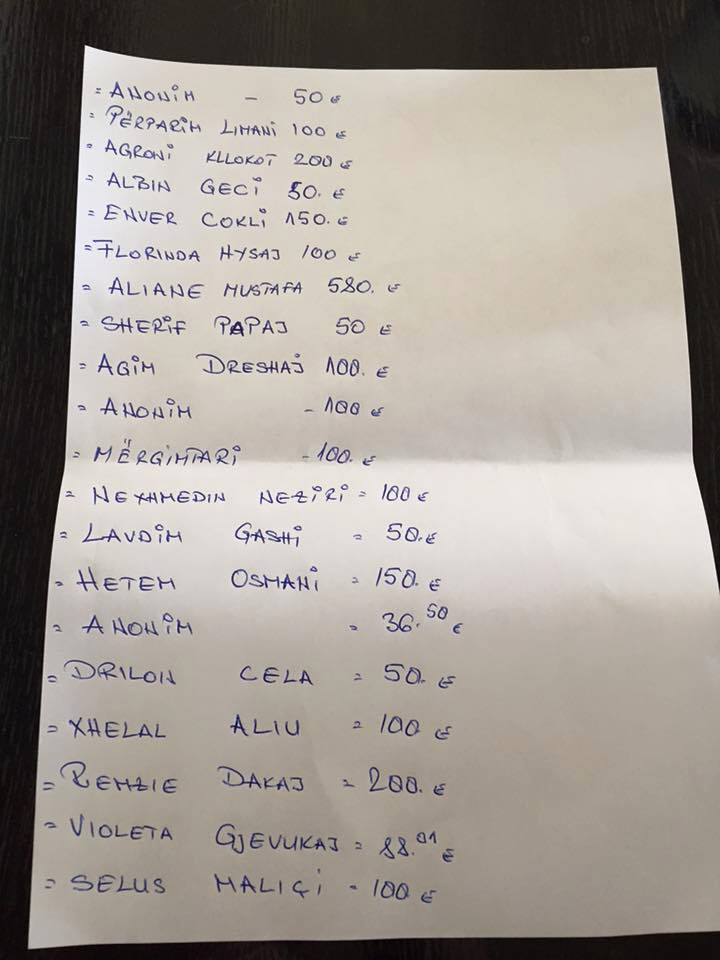 = ANONIM - 50 €
= PËRPARIM LIMANI 100 €
= AGRONI KLLOKOT 200 €
= ALBIN GECI 50. €
= ENVER COKLI 150. €
= FLORINDA HYSAJ 100 €
= ALIANE MUSTAFA 580. €
= SHERIF PAPAJ 50 €
= AGIM DRESHAJ 100. €
= ANONIM - 100 €
= MËRGIMTARI - 100. €
= NEXHMEDIN NEZIRI = 100 €
= LAVDIM GASHI = 50. €
= HETEM OSMANI = 150. €
= ANONIM = 36.50 €
= DRILON CELA = 50. €
= XHELAL ALIU = 100 €
= REMZIE DAKAJ = 200. €
= VIOLETA GJEVUKAJ = 88.01 €
= SELUS MALIÇI - 100 €